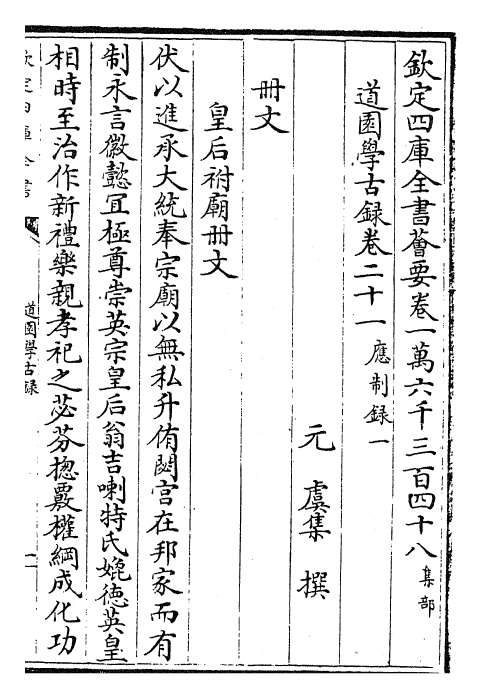 欽定四庫全書薈要卷一萬六千三百四十八 集部
道園學古録卷二十一 應制録一
元 虞集 撰
冊文
皇后祔廟冊文
伏以進承大統奉宗廟以無私升侑閟宫在邦家而有
制永言徽懿冝極尊崇英宗皇后翁吉喇特氏媲徳英皇
相時至治作新禮樂親孝祀之苾芬揔覈權綱成化功
道園學古録
一